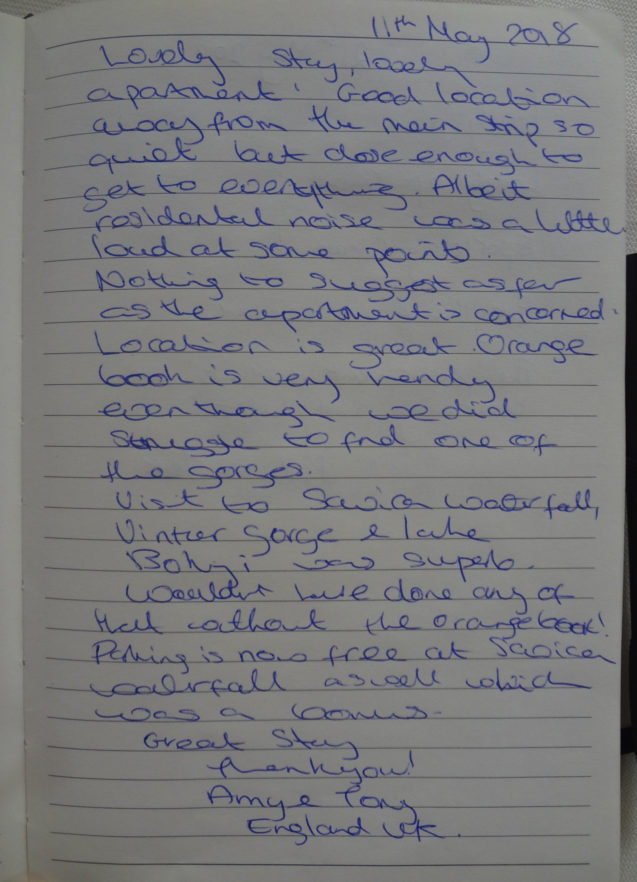 11th May 2018
Lovely Stay, lovely
apartment! Good location
away from the main strip so
quiet but close enough to
get to everything. Albeit
residental noise was a little
loud at some points.
Nothing to suggest as far
as the apartment is concerned.
Location is great. Orange
book is very handy
even though we did
struggle to find one of
the gorges.
Visit to Savica waterfall,
Vintger gorge & lake
Bohinj was superb.
Wouldn't have done any of
that without the orange book!
Parking is now free at Savica
waterfall aswell which
was a bonus.
Great Stay
thankyou!
Amy & Tony
England UK.